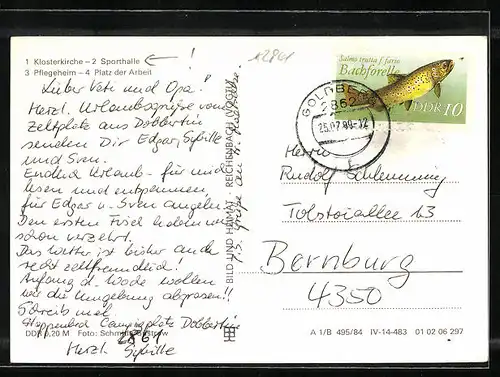 1 Klosterkirche – 2 Sporthalle
3 Pflegeheim – 4 Platz der Arbeit
!
Lieber Vati und Opa!
Herzl. Urlaubsgrüße vom
Zeltplatz aus Dobbertin
senden Dir Edgar, Sybille
und Sven.
Endlich Urlaub - für mich
lesen und entspannen,
für Edgar u. Sven angeln.
Den ersten Fisch haben wir
schon verzehrt.
Das Wetter ist bisher auch
recht zeltfreundlich!
Anfang d. Woche wollen
wir die Umgebung abgrasen!!
Schreib mal
Campingplatz Dobbertin
2861
Herzl. Sybille
DDR 0,20 M Foto:
P.S. Grüße an
BILD UND HEIMAT · REICHENBACH (VOGTL)
2861
Salmo trutta f. fario
Bachforelle
DDR 10
GOLDBERG
2862
25.07.89-12
Herrn
Rudolf
Tolstoiallee 13
Bernburg
4350
A 1/B 495/84 IV-14-483 01 02 06 297